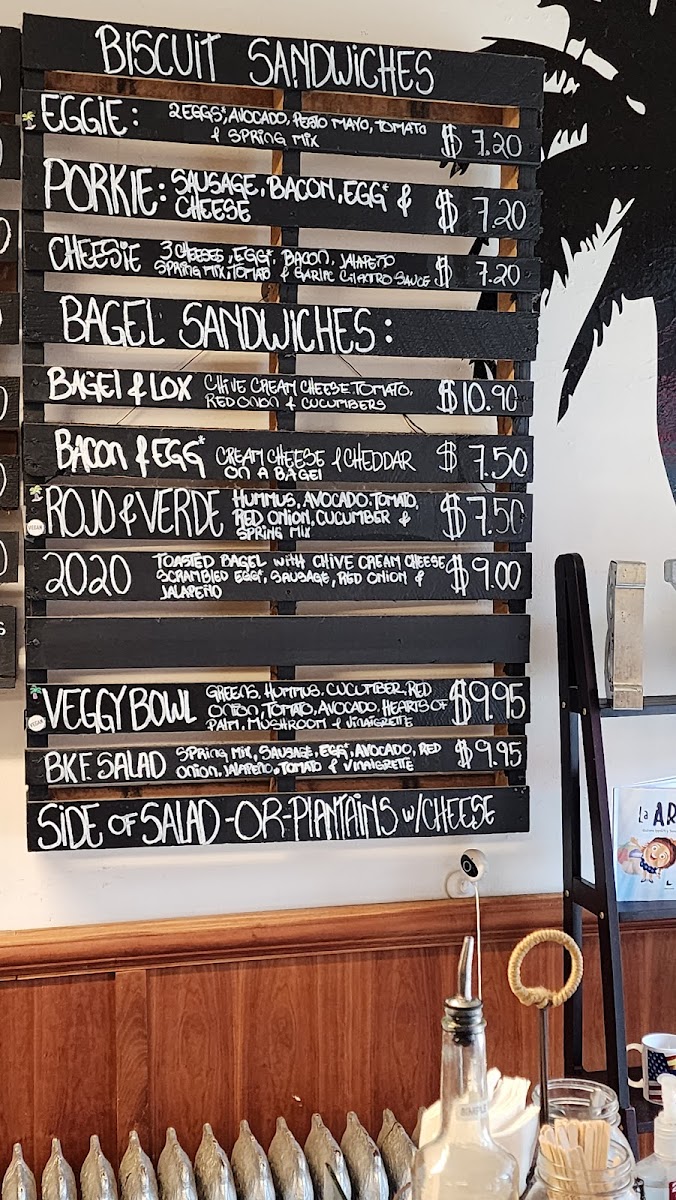 BISCUIT SANDWICHES
EGGIE: 2 EGGS*, AVOCADO, PESTO MAYO, TOMATO
& SPRING MIX $ 7.20
PORKIE: SAUSAGE, BACON, EGG* &
CHEESE $ 7.20
CHEESIE 3 CHEESES, EGG*, BACON, JALAPEÑO
SPRING MIX, TOMATO & GARLIC CILANTRO SAUCE $ 7.20
BAGEL SANDWICHES:
BAGEL & LOX CHIVE CREAM CHEESE, TOMATO,
RED ONION & CUCUMBERS $10.90
BACON & EGG* CREAM CHEESE & CHEDDAR
ON A BAGEL $ 7.50
ROJO & VERDE HUMMUS, AVOCADO, TOMATO,
RED ONION, CUCUMBER &
SPRING MIX $7.50
VEGAN
2020 TOASTED BAGEL WITH CHIVE CREAM CHEESE,
SCRAMBLED EGG*, SAUSAGE, RED ONION &
JALAPEÑO $9.00
VEGGY BOWL GREENS, HUMMUS, CUCUMBER, RED
ONION, TOMATO, AVOCADO, HEARTS OF
PALM, MUSHROOM & VINAIGRETTE $9.95
VEGAN
BKF. SALAD SPRING MIX, SAUSAGE, EGG*, AVOCADO, RED
ONION, JALAPEÑO, TOMATO & VINAIGRETTE $9.95
SIDE OF SALAD -OR- PLANTAINS w/CHEESE
La AR